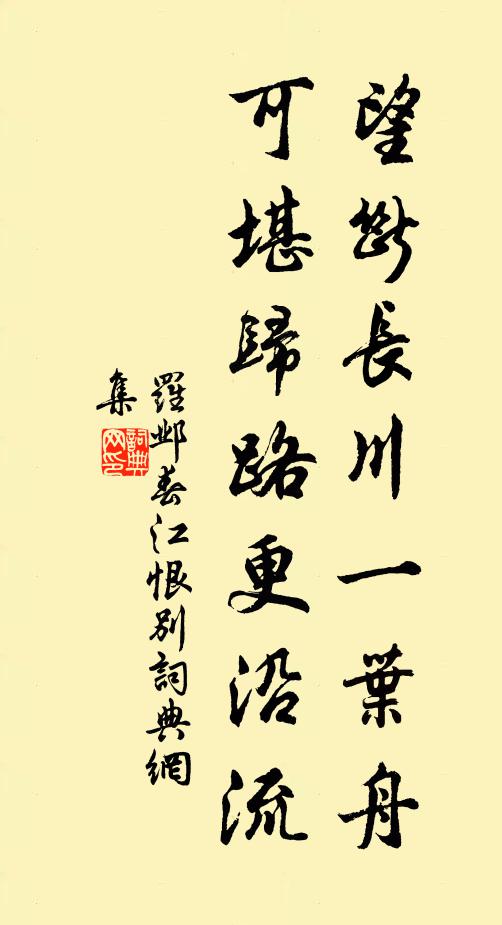 望斷長川一葉舟
可堪歸路更沿流
羅鄴春江恨別詞典網
集
詞典
网印